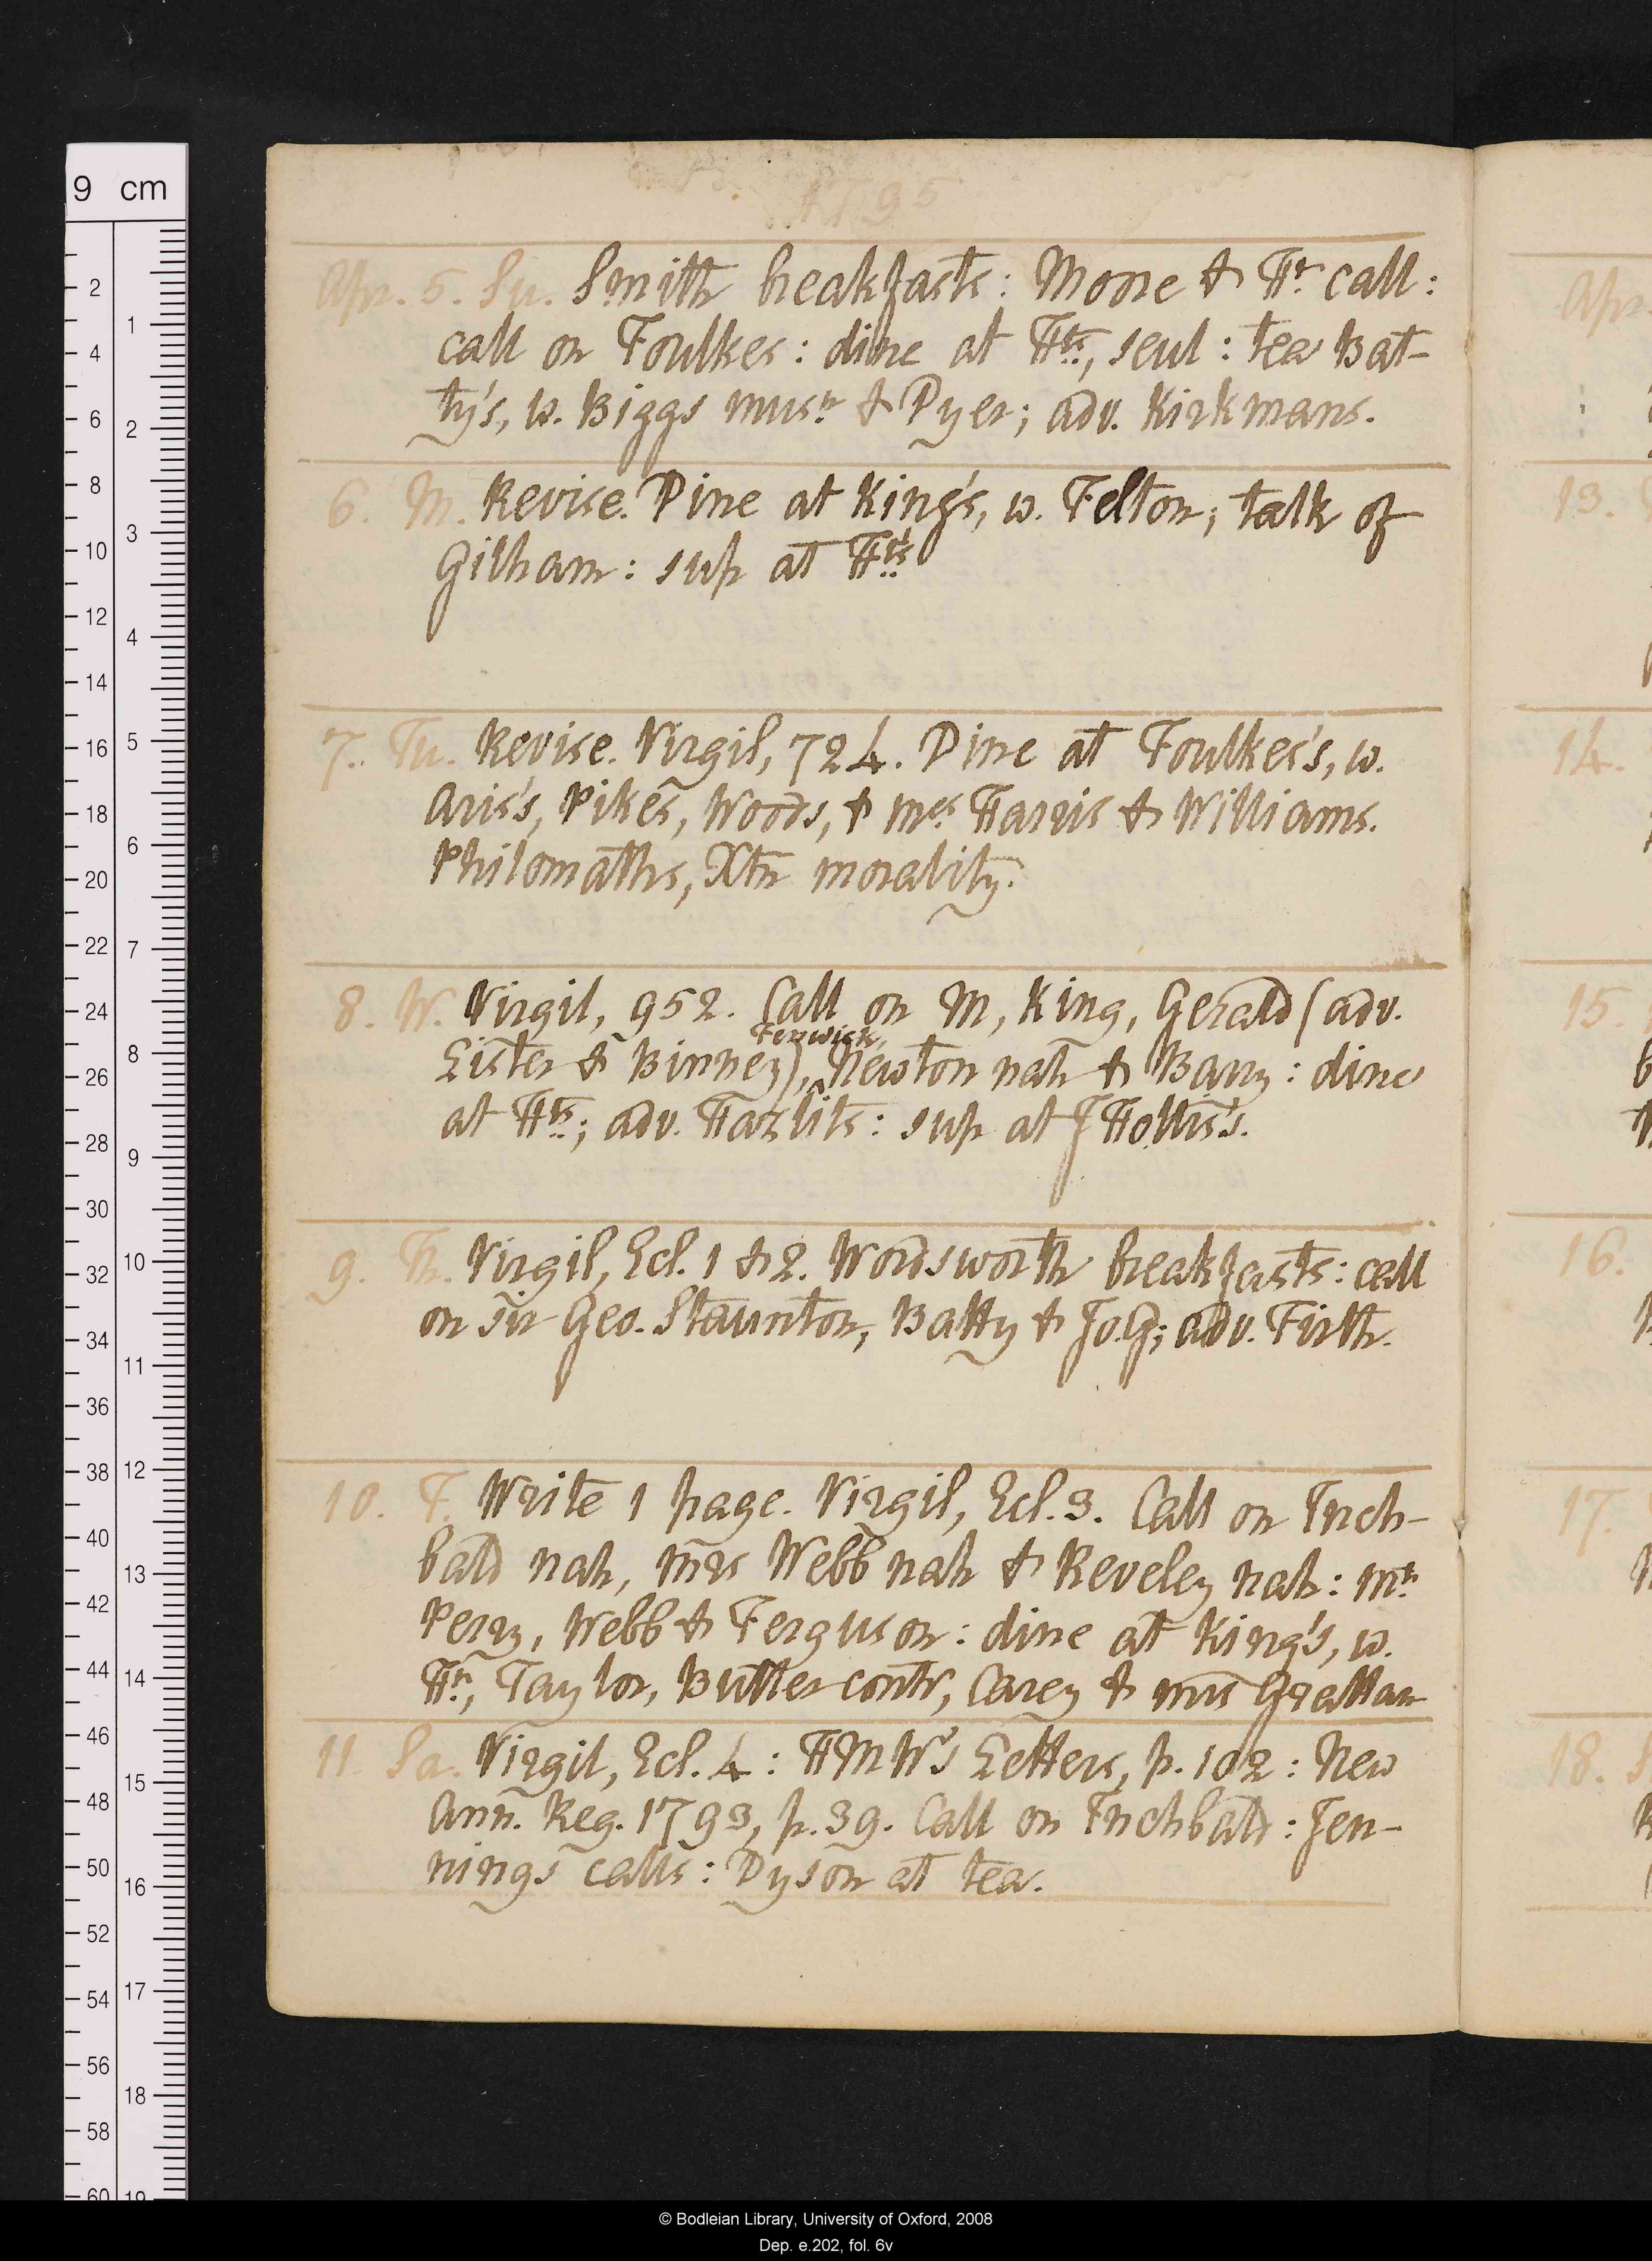 1795
Apr. 5. Su. Smith breakfasts: Moore & Ht call:
call on Foulkes: dine at Hts, seul: tea Bat-
ty's, w. Biggs musn & Dyer; adv. Kirkmans.
6. M. Revise. Dine at King's, w. Felton; talk of
Gilham: sup at Hts
7. Tu. Revise. Virgil, 724. Dine at Foulkes's, w.
Aris's, Pikes, Woods, & Mrs Harris & Williams.
Philomaths, Xtn morality.
8. W. Virgil, 952. Call on M, King, Gerald (adv.
Fenwick,
Lister & Binney), Newton nah & Barry: dine
at Hts; adv. Hazlits: sup at J Hollis's.
9. Th. Virgil, Ecl. 1 & 2. Wordsworth breakfasts: call
on sir Geo. Staunton, Batty & Jo.G; adv. Firth.
10. F. Write 1 page. Virgil, Ecl. 3. Call on Inch-
bald nah, mrs Webb nah & Reveley nah: mt
Perry, Webb & Ferguson: dine at King's, w.
Ht, Taylor, Butler contr, Carey & mrs Grattan
11. Sa. Virgil, Ecl. 4: HMW's Letters, p. 102: New
Ann. Reg. 1793, p. 39. Call on Inchbald: Jen-
nings calls: Dyson at tea.
Apr.
13.
14.
15.
16.
17.
18. S
9 cm
2
4
6
8
10
12
14
16
18
20
22
24
26
28
30
32
34
36
38
40
42
44
46
48
50
52
54
56
58
60
1
2
3
4
5
6
7
8
9
10
11
12
13
14
15
16
17
18
19
© Bodleian Library, University of Oxford, 2008
Dep. e.202, fol. 6v